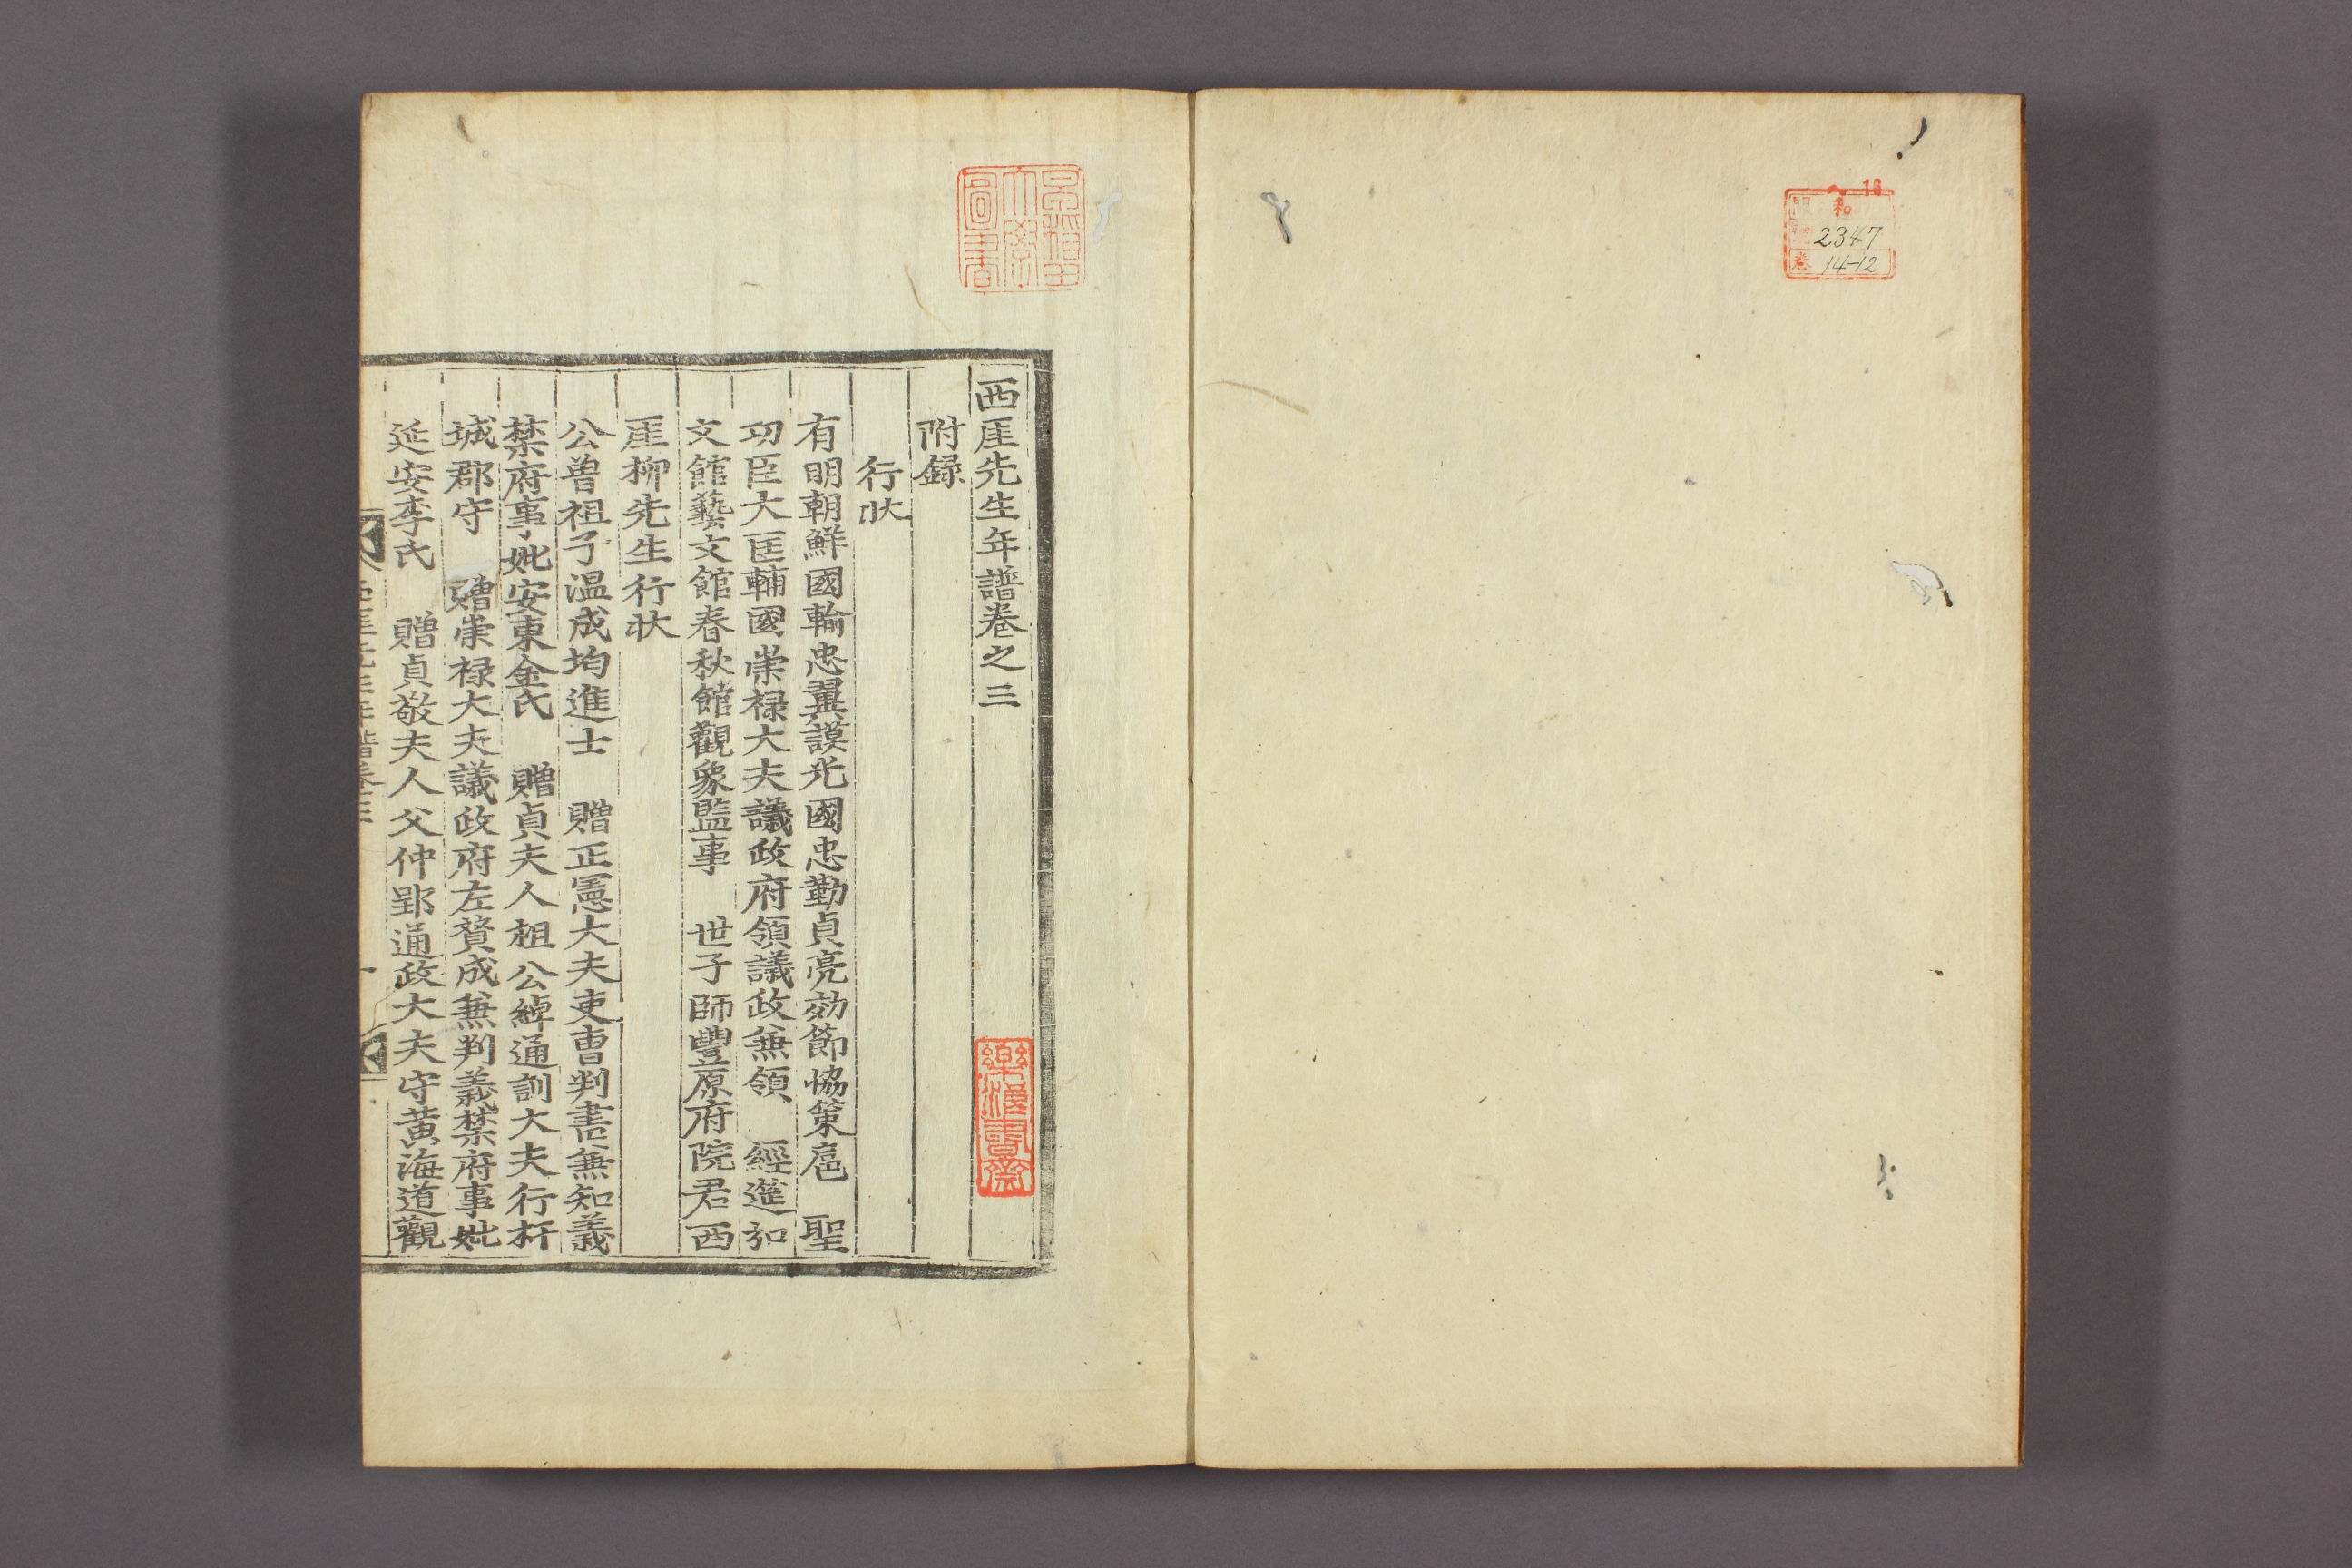 和
2347
卷
14-12
早稲田
大學
圖書
西厓先生年譜卷之三
樂浪書齋
附録
行狀
有明朝鮮國輸忠翼謨光國忠勤貞亮効節協策扈 聖
功臣大匡輔國崇禄大夫議政府領議政兼領 經筵弘
文館藝文館春秋館觀象監事 世子師豐原府院君西
厓柳先生行狀
公曾祖子温成均進士 贈正憲大夫吏曹判書兼知義
禁府事妣安東金氏 贈貞夫人祖公綽通訓大夫行杆
城郡守 贈崇禄大夫議政府左贊成兼判義禁府事妣
延安李氏 贈貞敬夫人父仲郢通政大夫守黃海道觀